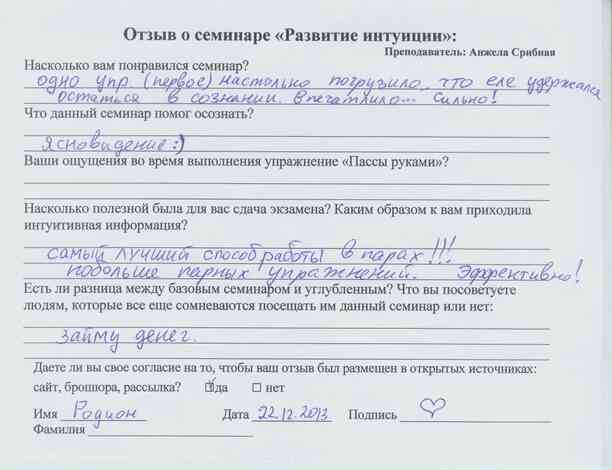 Отзыв о семинаре «Развитие интуиции»:
Преподаватель: Анжела Срибная
Насколько вам понравился семинар?
одно упр (первое) настолько погрузило, что еле удержался
остаться в сознании. Впечатлило... сильно!
Что данный семинар помог осознать?
Ясновидение :)
Ваши ощущения во время выполнения упражнение «Пассы руками»?
Насколько полезной была для вас сдача экзамена? Каким образом к вам приходила
интуитивная информация?
самый лучший способ работы в парах!!!
побольше парных упражнений. Эффективно!
Есть ли разница между базовым семинаром и углубленным? Что вы посоветуете
людям, которые все еще сомневаются посещать им данный семинар или нет:
займу денег.
Даете ли вы свое согласие на то, чтобы ваш отзыв был размещен в открытых источниках:
сайт, брошюра, рассылка? ☑да ☐ нет
Имя Родион Дата 22.12.2013 Подпись ♡
Фамилия